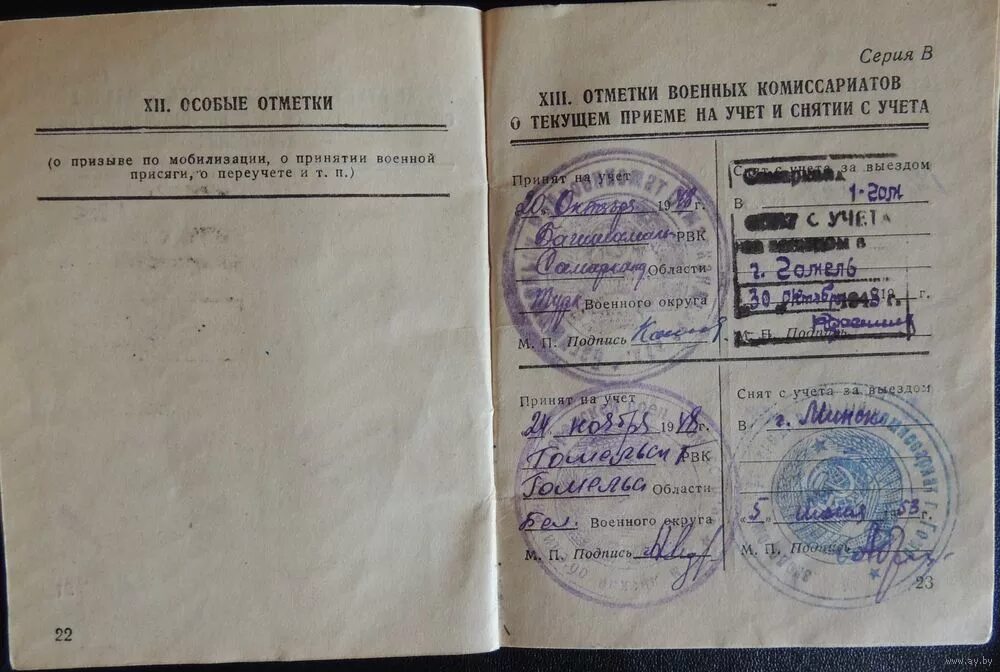 XII. ОСОБЫЕ ОТМЕТКИ
(о призыве по мобилизации, о принятии военной
присяги, о переучете и т. п.)
22
Серия В
XIII. ОТМЕТКИ ВОЕННЫХ КОМИССАРИАТОВ
О ТЕКУЩЕМ ПРИЕМЕ НА УЧЕТ И СНЯТИИ С УЧЕТА
Принят на учет
„20„ Октября 1948 г.
РВК
Самарканд Области
Турк. Военного округа
М. П. Подпись
Снят с учета за выездом
В
СНЯТ С УЧЕТА
за выездом в
г. Гомель
30 октября 1948 г.
М. П. Подпись
Принят на учет
24 ноября 1948 г.
Гомельск РВК
Гомельск Области
Бел. Военного округа
М. П. Подпись
Снят с учета за выездом
В г. Минск
„5„ 1953 г.
М. П. Подпись
23
www.ay.by